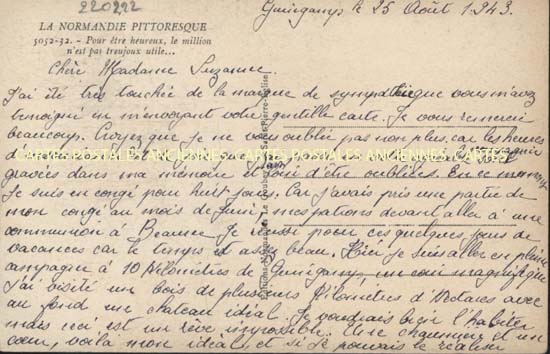 220222
Guingamp, le 25 Août 1943.
LA NORMANDIE PITTORESQUE
5052-32. - Pour être heureux, le million
n'est pas toujours utile...
Chère Madame Suzanne.
J'ai été très touchée de la marque de sympathie que vous m'avez
témoigné en m'envoyant votre gentille carte. Je vous remercie
beaucoup. Croyez que je ne vous oublie pas non plus, car les heures
CARTES POSTALES ANCIENNES CARTES POSTALES ANCIENNES CARTES
gravées dans ma mémoire loin d'être oubliées. En ce moment
Je suis en congé pour huit jours. Car j'avais pris une partie de
mon congé au mois de Juin, mes patrons devant aller à une
communion à Beaune. Je pour ces quelques jours de
vacances car le temps est assez beau. Hier je suis allée en pleine
campagne à 10 kilomètres de Guingamp, un coin magnifique
J'ai visité un bois de plusieurs kilomètres d'Hectares avec
au fond un chateau idéal. Je voudrais bien l'habiter
mais ceci est un rêve impossible. Une chaumière et un
cœur, voilà mon idéal, et si je pouvais le réaliser